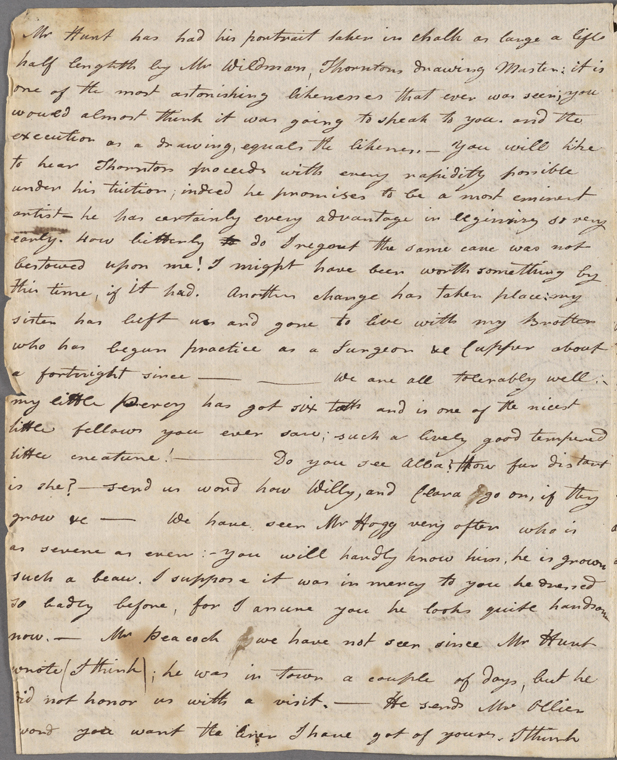 Mr Hunt has had his portrait taken in chalk as large as life
half lenghth by Mr Wildman, Thorntons drawing Master: it is
one of the most astonishing likenesses that ever was seen; you
would almost think it was going to speak to you. and the
execution as a drawing, equals the likeness. — You will like
to hear Thornton proceeds with every rapidity possible
under his tuition; indeed he promises to be a most eminent
artist — he has certainly every advantage in beginning so very
early. How bitterly do I regret the same care was not
bestowed upon me! I might have been worth something by
this time, if it had. Another change has taken place: my
sister has left us and gone to live with my Brother
who has begun practice as a Surgeon &c Cupper about
a fortnight since — — We are all tolerably well:
my little Percy has got six teeth and is one of the nicest
little fellows you ever saw; such a lively good tempered
little creature! — Do you see Alba? How far distant
is she? — send us word how Willy, and Clara go on, if they
grow &c — We have seen Mr Hogg very often who is
as severe as ever: — you will hardly know him, he is grown
such a beau. I suppose it was in mercy to you he dressed
so badly before, for I assure you he looks quite handsome
now. — Mr Peacock we have not seen since Mr Hunt
wrote (I think); he was in town a couple of days, but he
did not honor us with a visit. — He sends Mr Ollier
word you want the liver I have got of yours. I think